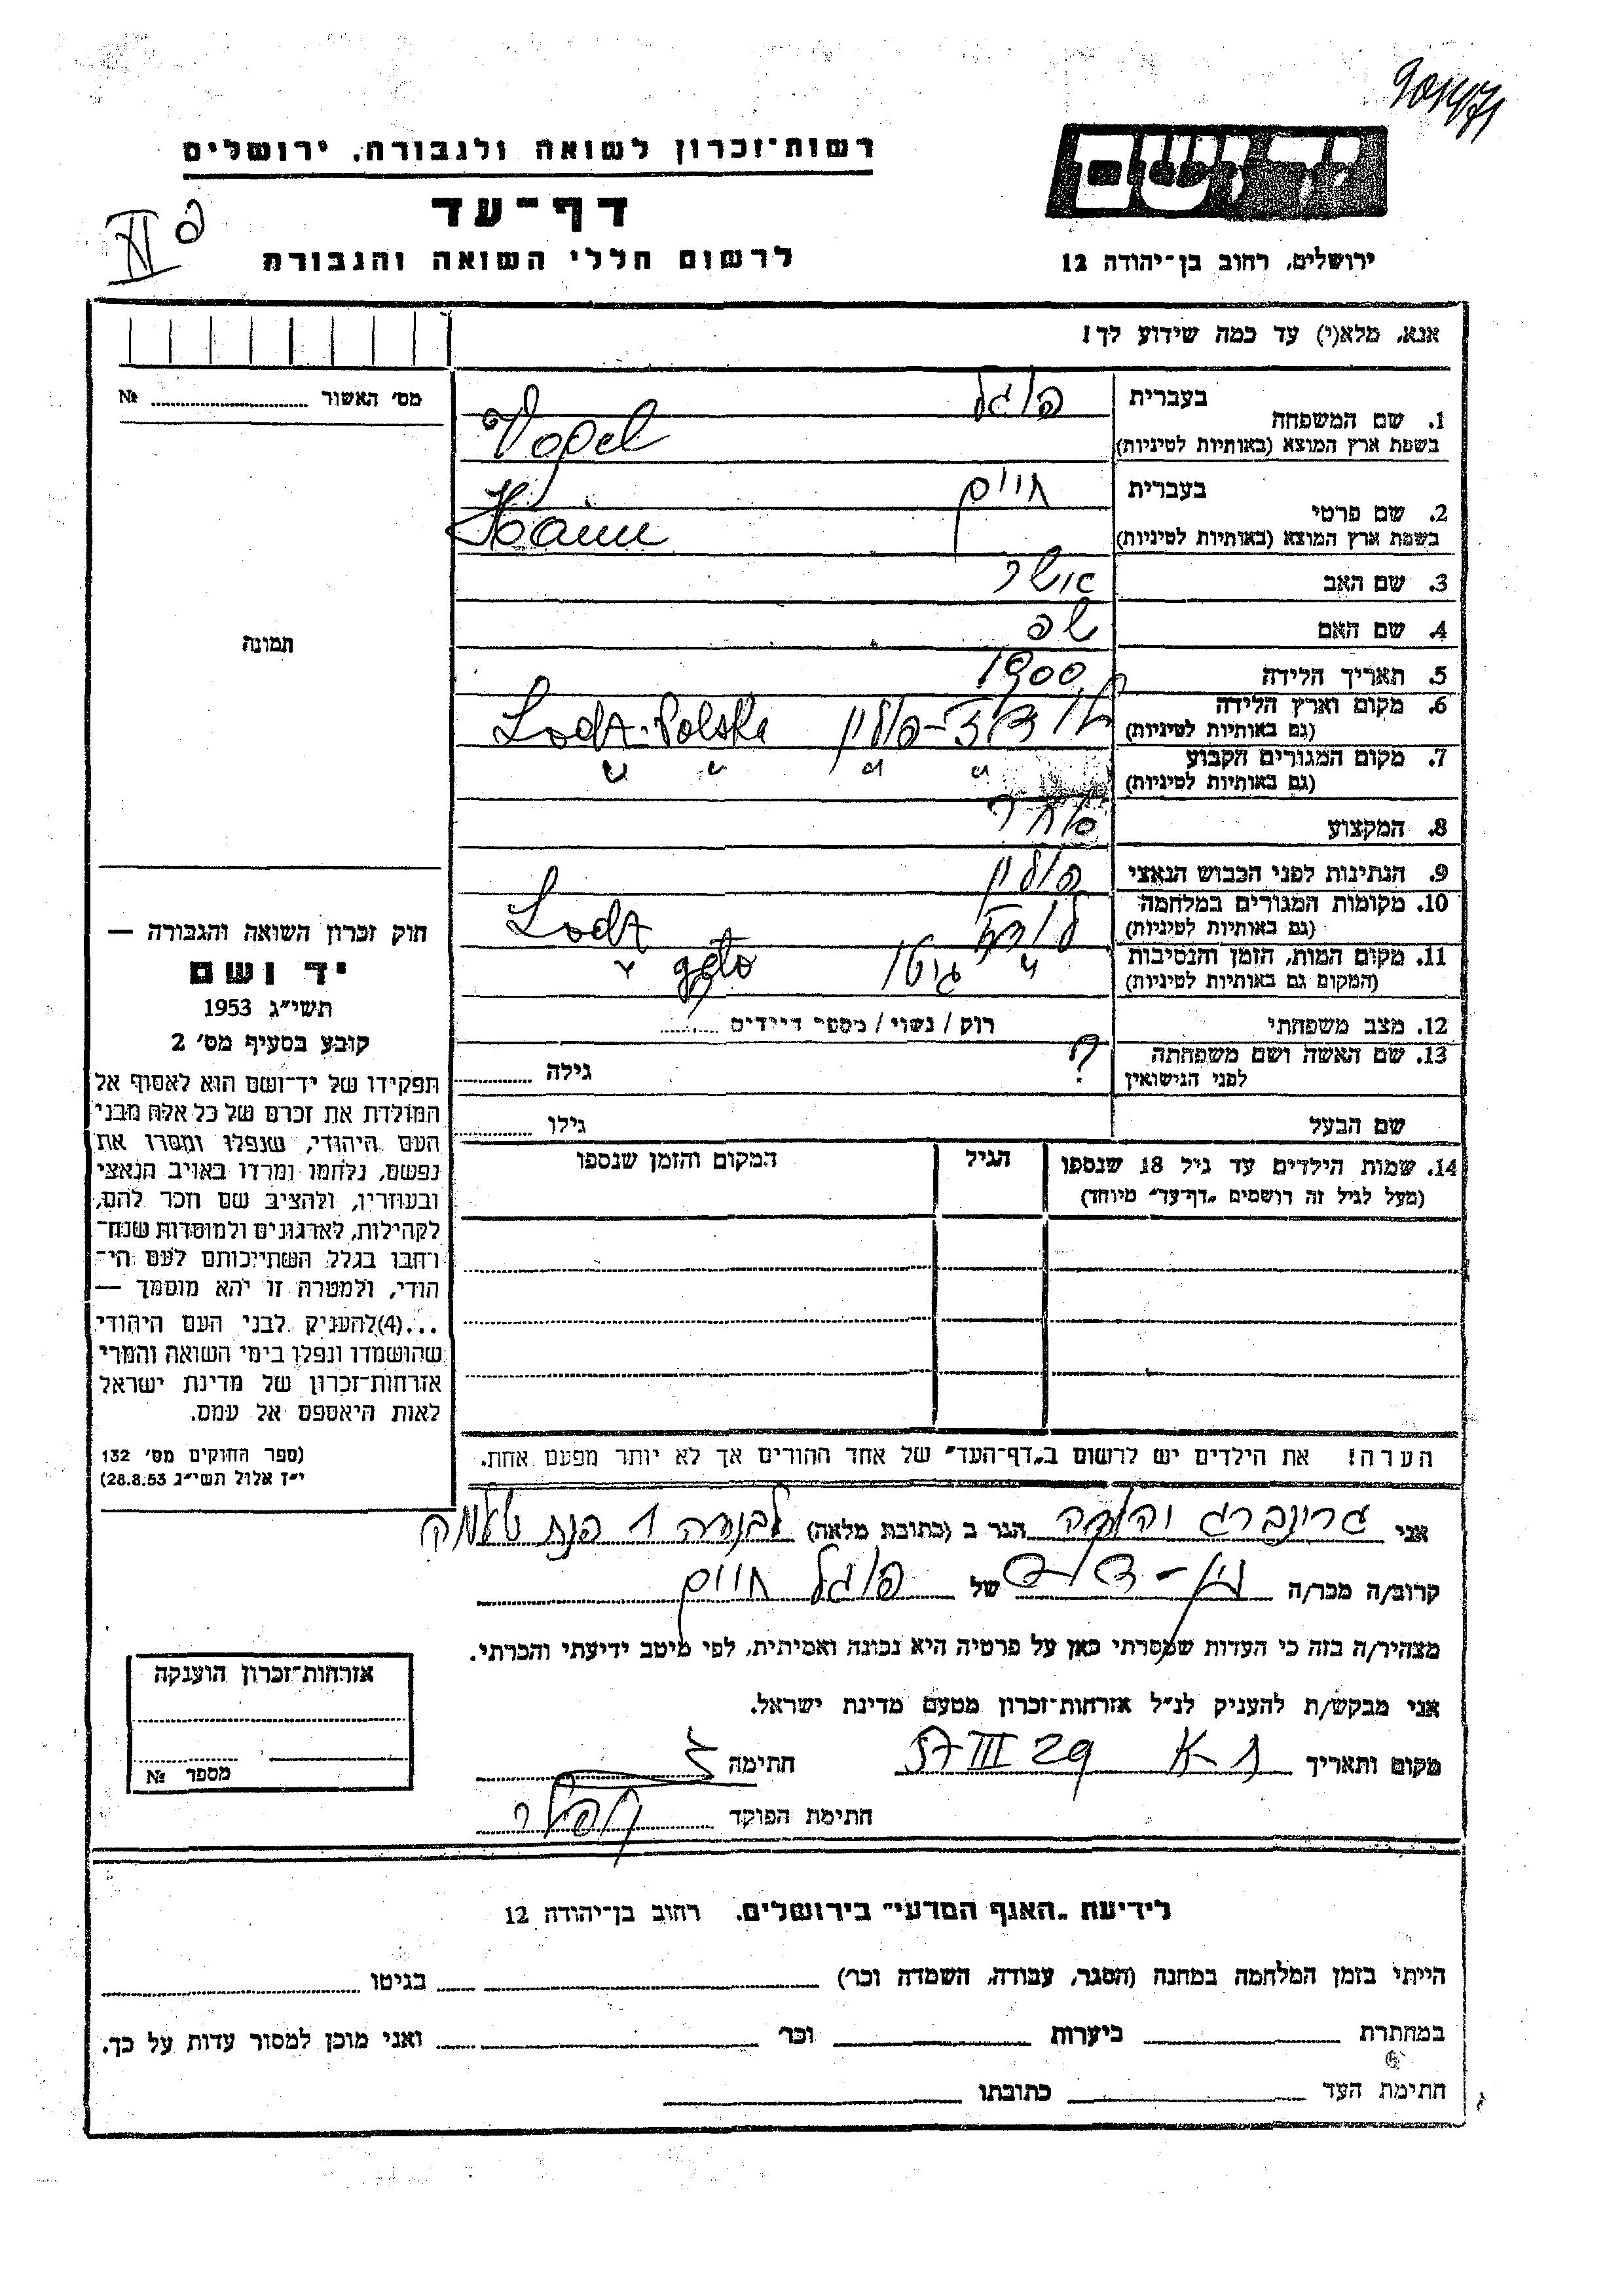 רשות־זכרון לשואה ולגבורה, ירושלים
יד ושם
דף־עד
לרשום חללי השואה והגבורה
ירושלים, רחוב בן־יהודה 12
אנא, מלא(י) עד כמה שידוע לך!
מס׳ האשור № 
1. שם המשפחה בעברית פוגל
בשפת ארץ המוצא (באותיות לטיניות) Vogel
2. שם פרטי בעברית חיים
בשפת ארץ המוצא (באותיות לטיניות) Haim
3. שם האב אשר
4. שם האם
5. תאריך הלידה 1900
6. מקום וארץ הלידה לודז׳-פולין Lodz-Polska
(גם באותיות לטיניות)
7. מקום המגורים הקבוע " " " "
(גם באותיות לטיניות)
8. המקצוע סוחר
9. הנתינות לפני הכבוש הנאצי פולין
10. מקומות המגורים במלחמה לודז Lodz
(גם באותיות לטיניות)
11. מקום המות, הזמן והנסיבות " גיטו " geto
(המקום גם באותיות לטיניות)
12. מצב משפחתי רוק / נשוי / מספר הילדים
13. שם האשה ושם משפחתה ? גילה
לפני הנישואין
שם הבעל גילו
14. שמות הילדים עד גיל 18 שנספו הגיל המקום והזמן שנספו
(מעל לגיל זה רושמים „דף־עד״ מיוחד)
הערה! את הילדים יש לרשום ב„דף־העד״ של אחד ההורים אך לא יותר מפעם אחת.
תמונה
חוק זכרון השואה והגבורה —
יד ושם
תשי״ג 1953
קובע בסעיף מס׳ 2
תפקידו של יד־ושם הוא לאסוף אל
המולדת את זכרם של כל אלה מבני
העם היהודי, שנפלו ומסרו את
נפשם, נלחמו ומרדו באויב הנאצי
ובעוזריו, ולהציב שם וזכר להם,
לקהילות, לארגונים ולמוסדות שנח־
רבו בגלל השתייכותם לעם הי־
הודי, ולמטרה זו יהא מוסמך —
...(4)להעניק לבני העם היהודי
שהושמדו ונפלו בימי השואה והמרי
אזרחות־זכרון של מדינת ישראל
לאות היאספם אל עמם.
(ספר החוקים מס׳ 132
י״ז אלול תשי״ג 28.8.53)
אני גרינברג הגר ב (כתובת מלאה)
קרוב/ה מכר/ה בן-דוד של פוגל חיים
מצהיר/ה בזה כי העדות שמסרתי כאן על פרטיה היא נכונה ואמיתית, לפי מיטב ידיעתי והכרתי.
אני מבקש/ת להעניק לנ״ל אזרחות־זכרון מטעם מדינת ישראל.
מקום ותאריך 29 III 57 חתימה
חתימת הפוקד
אזרחות־זכרון הוענקה
מספר №
לידיעת „האגף המדעי״ בירושלים, רחוב בן־יהודה 12
הייתי בזמן המלחמה במחנה (הסגר, עבודה, השמדה וכר׳) בגיטו
במחתרת ביערות וכר׳ ואני מוכן למסור עדות על כך.
חתימת העד כתובתו